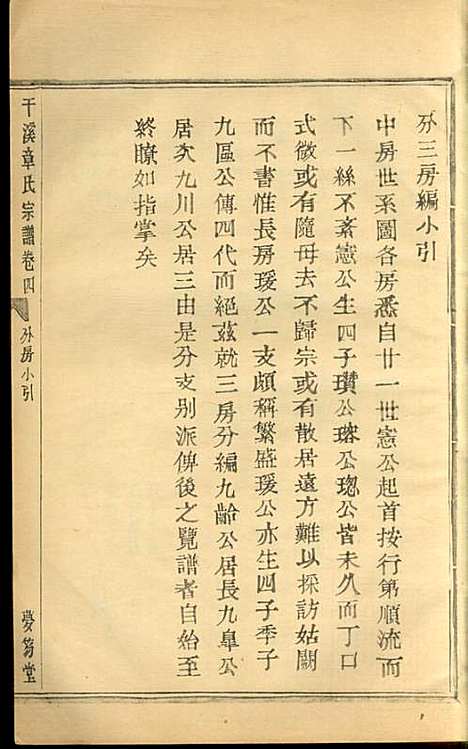 外三房編小引
中房世系圖各房悉自廿一世憲公起首按行第順流而
下一絲不紊憲公生四子瓚公瑢公璁公皆未久而丁口
式微或有隨母去不歸宗或有散居遠方難以採訪姑闕
而不書惟長房瑗公一支頗稱繁盛瑗公亦生四子季子
九區公傳四代而絕茲就三房分編九齡公居長九皐公
居次九川公居三由是分支别派俾後之覽譜者自始至
終瞭如指掌矣
干溪章氏宗譜卷四 外房小引 夢芻堂